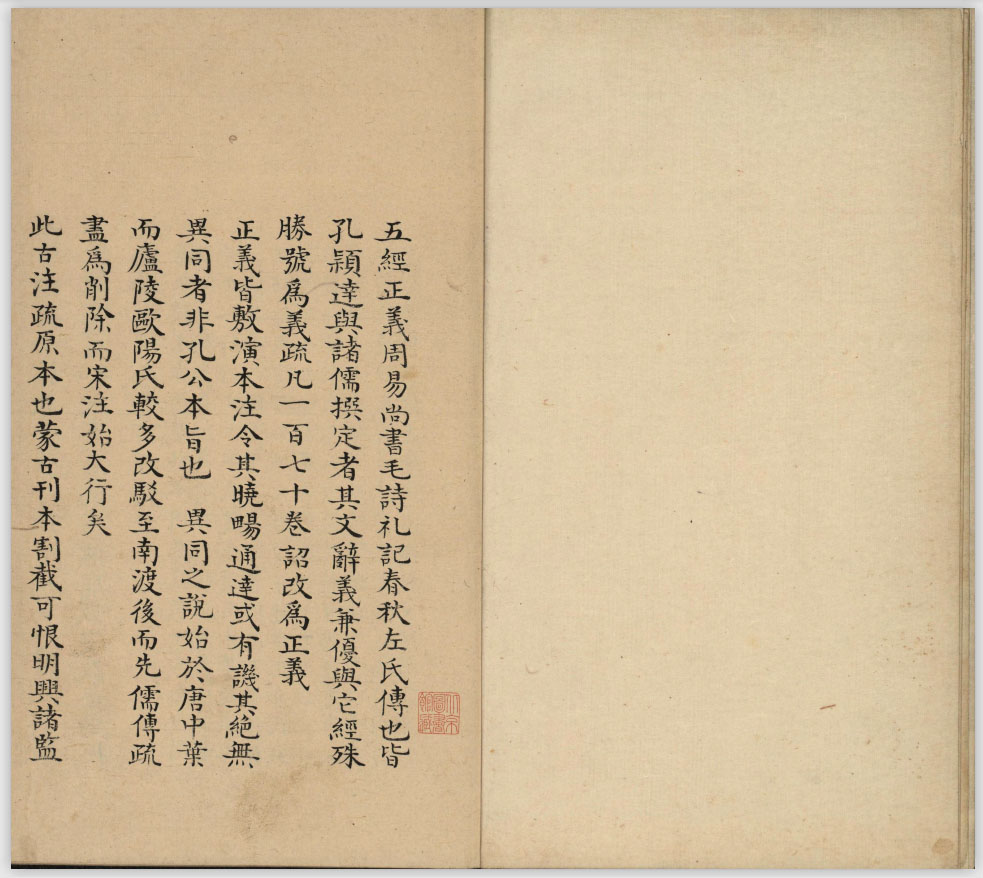 五經正義周易尚書毛詩礼記春秋左氏傳也皆
孔穎達與諸儒撰定者其文辭義兼優與它經殊
勝號為義疏凡一百七十卷詔改為正義
正義皆敷演本注令其曉暢通達或有譏其絕無
異同者非孔公本旨也 異同之說始於唐中葉
而廬陵歐陽氏較多改駁至南渡後而先儒傳疏
盡為削除而宋注始大行矣
此古注疏原本也蒙古刊本割截可恨明興諸監